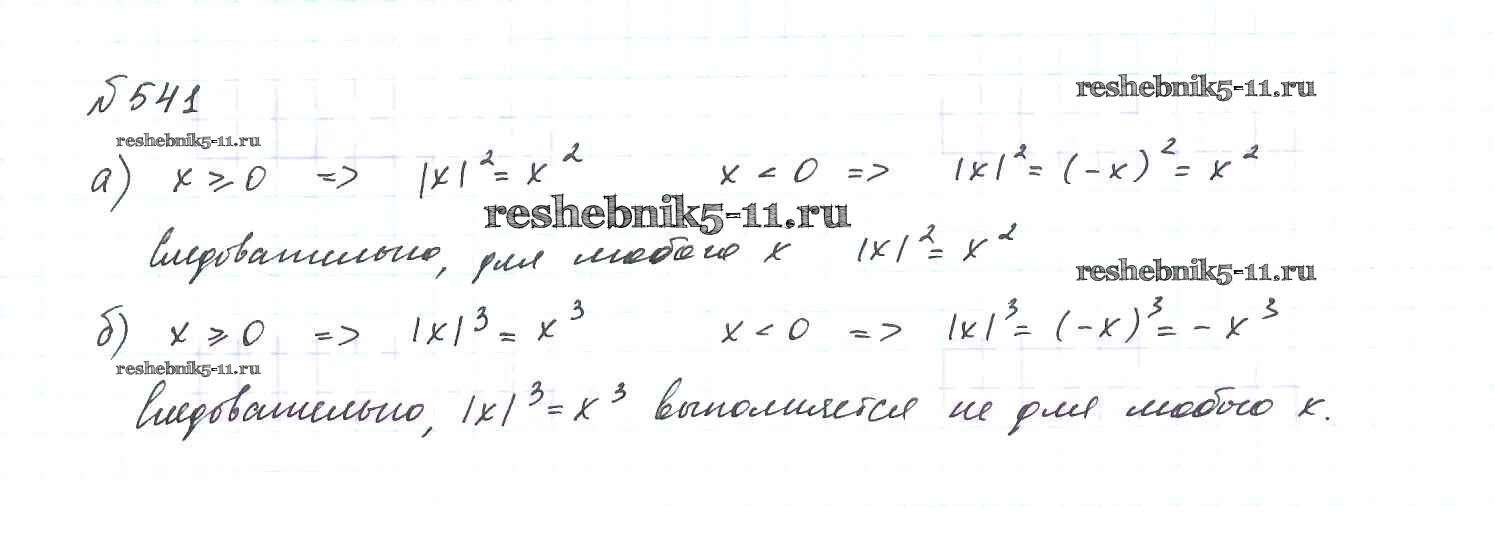 №541
reshebnik5-11.ru
reshebnik5-11.ru
а) x ≥ 0 => |x|² = x² x < 0 => |x|² = (-x)² = x²
reshebnik5-11.ru
Следовательно, для любого x |x|² = x²
reshebnik5-11.ru
б) x ≥ 0 => |x|³ = x³ x < 0 => |x|³ = (-x)³ = -x³
reshebnik5-11.ru
Следовательно, |x|³ = x³ выполняется не для любого x.